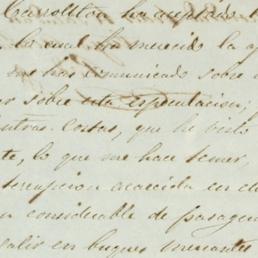 Carollton ha aceptado
lo cual ha merecido la
me has comunicado sobre
sobre esta especulacion;
otras. Cosas, que he visto
te, lo que me hace temer,
terrupcion acaecida en el
considerable de pasage
salir en buques mercante